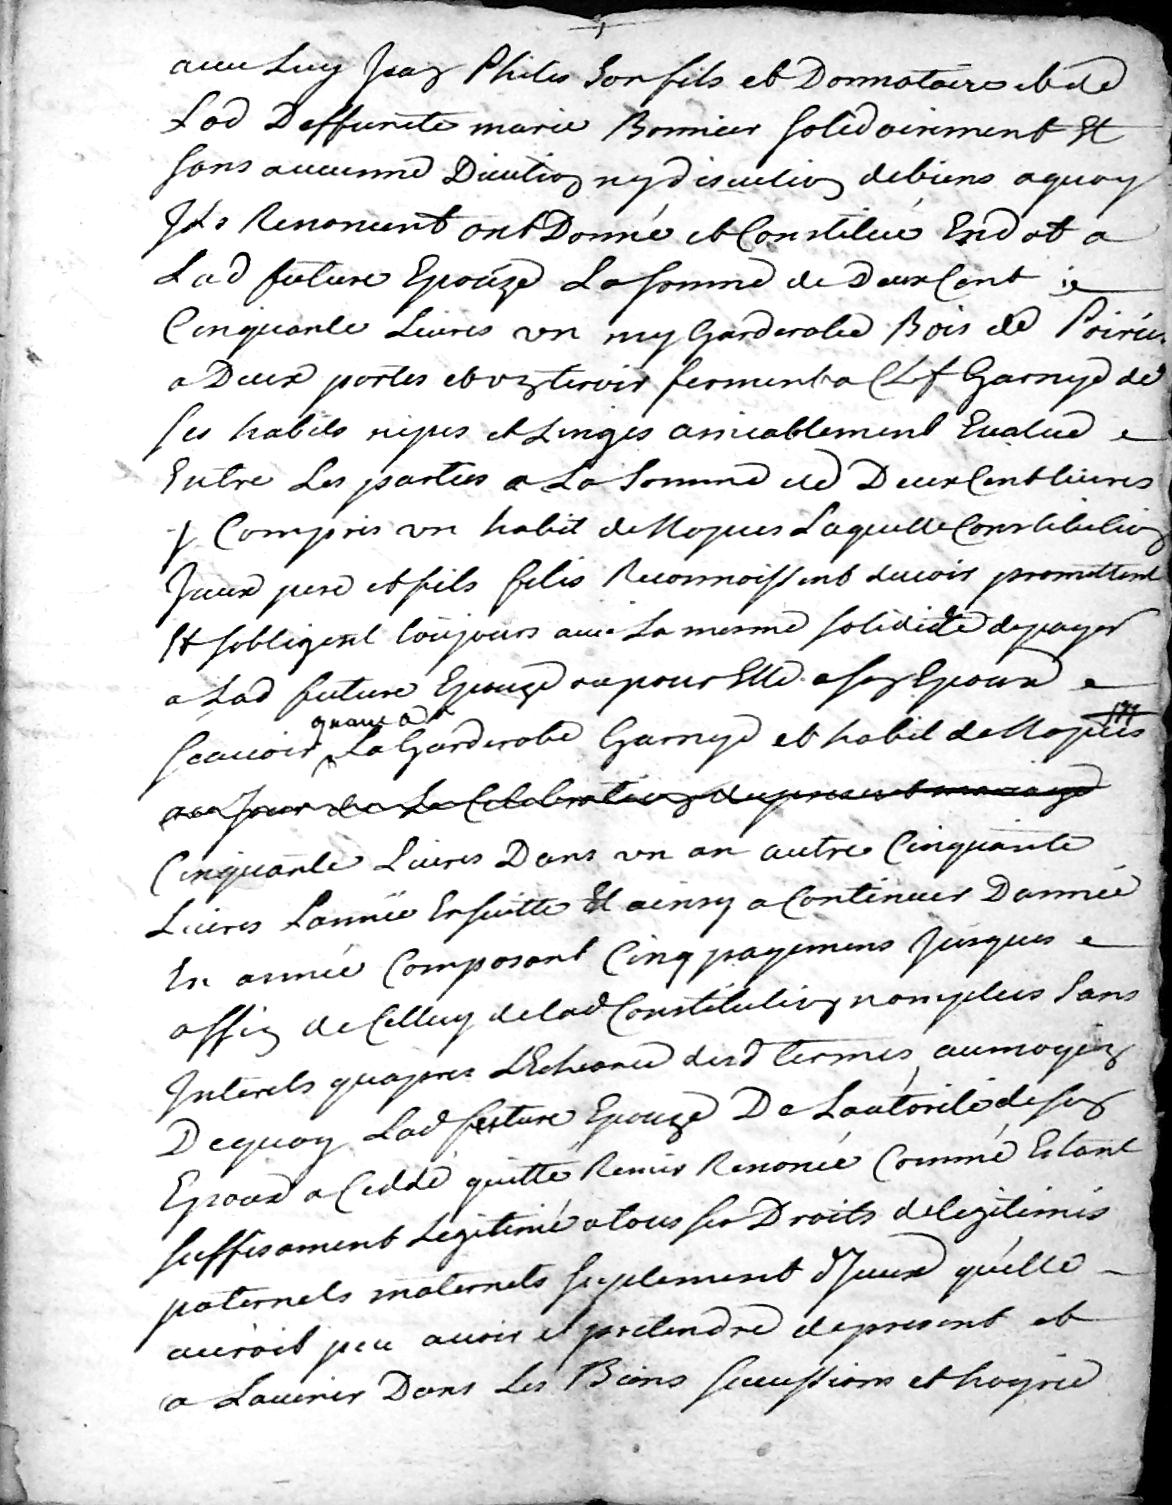 avec Luy Jean Philis Son fils et Donnotaire et de
Lad Deffuncte marie Bonnier solidairement Et
sans aucunne Division ny discution de biens a quoy
Ils Renoncent ont Donné et Constitué En dot a
Lad future Epouze La somme de Deux Cent
Cinquante Livres un my Garderobe Bois de Poirier
a Deux portes et un tiroir fermant a Clef Garnye de
ses habits nipes et Linges amieablement Evalué
Entre Les parties a La Somme de Deux Cent livres
y Compris un habit de Nopces Laquelle Constitution
Iceux pere et fils filis Reconnoissent devoir promettent
Et sobligent toujours avec La mesme solidité de payer
a Lad future Epouze ou pour Elle a son Epoux
quant a
Scavoir La Garderobe Garnye et habit de Nopces
au Jour de La Celebration du present mariage
Cinquante Livres Dans un an autre Cinquante
Livres Lannée Ensuitte Et ainsy a Continuer Dannée
En année Composant Cinq payemens Jusques
affin de Celluy de lad Constitution nomplus Sans
Interets quapres LEcheance desd termes, aumoyen
Dequoy Lad future Epouze De Lautorité de son
Epoux a Ceddé quitté Remis Renoncé Comme Estant
suffisament Legitimé a tous ses Droits de legitimes
paternels maternels suplement dIceux quelle
auroit peu avoir et pretendre de present et
a Lavenir Dans Les Biens successions et hoyrie